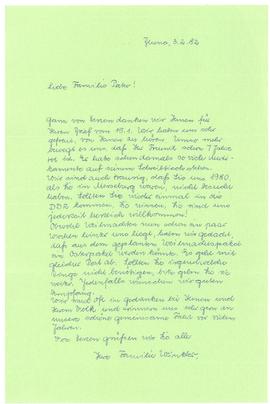 Jena, 3.2.82
Liebe Familie Pako!
Ganz von Herzen danken wir Ihnen für
Ihren Brief vom 18.1. Wir haben uns sehr
gefreut, von Ihnen zu hören. Umso mehr
bewegt es uns, daß Ihr Freund schon 7 Jahre
tot ist. Er hatte schon damals so viele Medi-
kamente auf seinem Schreibtisch stehen.
Wir sind auch traurig, daß Sie uns 1980,
als Sie in Merseburg waren, nicht besucht
haben. Sollten Sie noch einmal in die
DDR kommen, Sie wissen, Sie sind uns
jederzeit herzlich willkommen!
Obwohl Weihnachten nun schon ein paar
Wochen hinter uns liegt, haben wir gedacht,
daß aus dem geplanten Weihnachtspaket
ein Osterpaket werden könnte. Es geht mit
gleicher Post ab. Sollten Sie irgendwelche
Dinge nicht benötigen, bitte geben Sie sie
weiter. Jedenfalls wünschen wir guten
Empfang.
Wir sind oft in Gedanken bei Ihnen und
Ihrem Volk und erinnern uns sehr gern an
unsere schöne gemeinsame Fahrt vor vielen
Jahren.
Von Herzen grüßen wir Sie alle
Ihre Familie Winkler